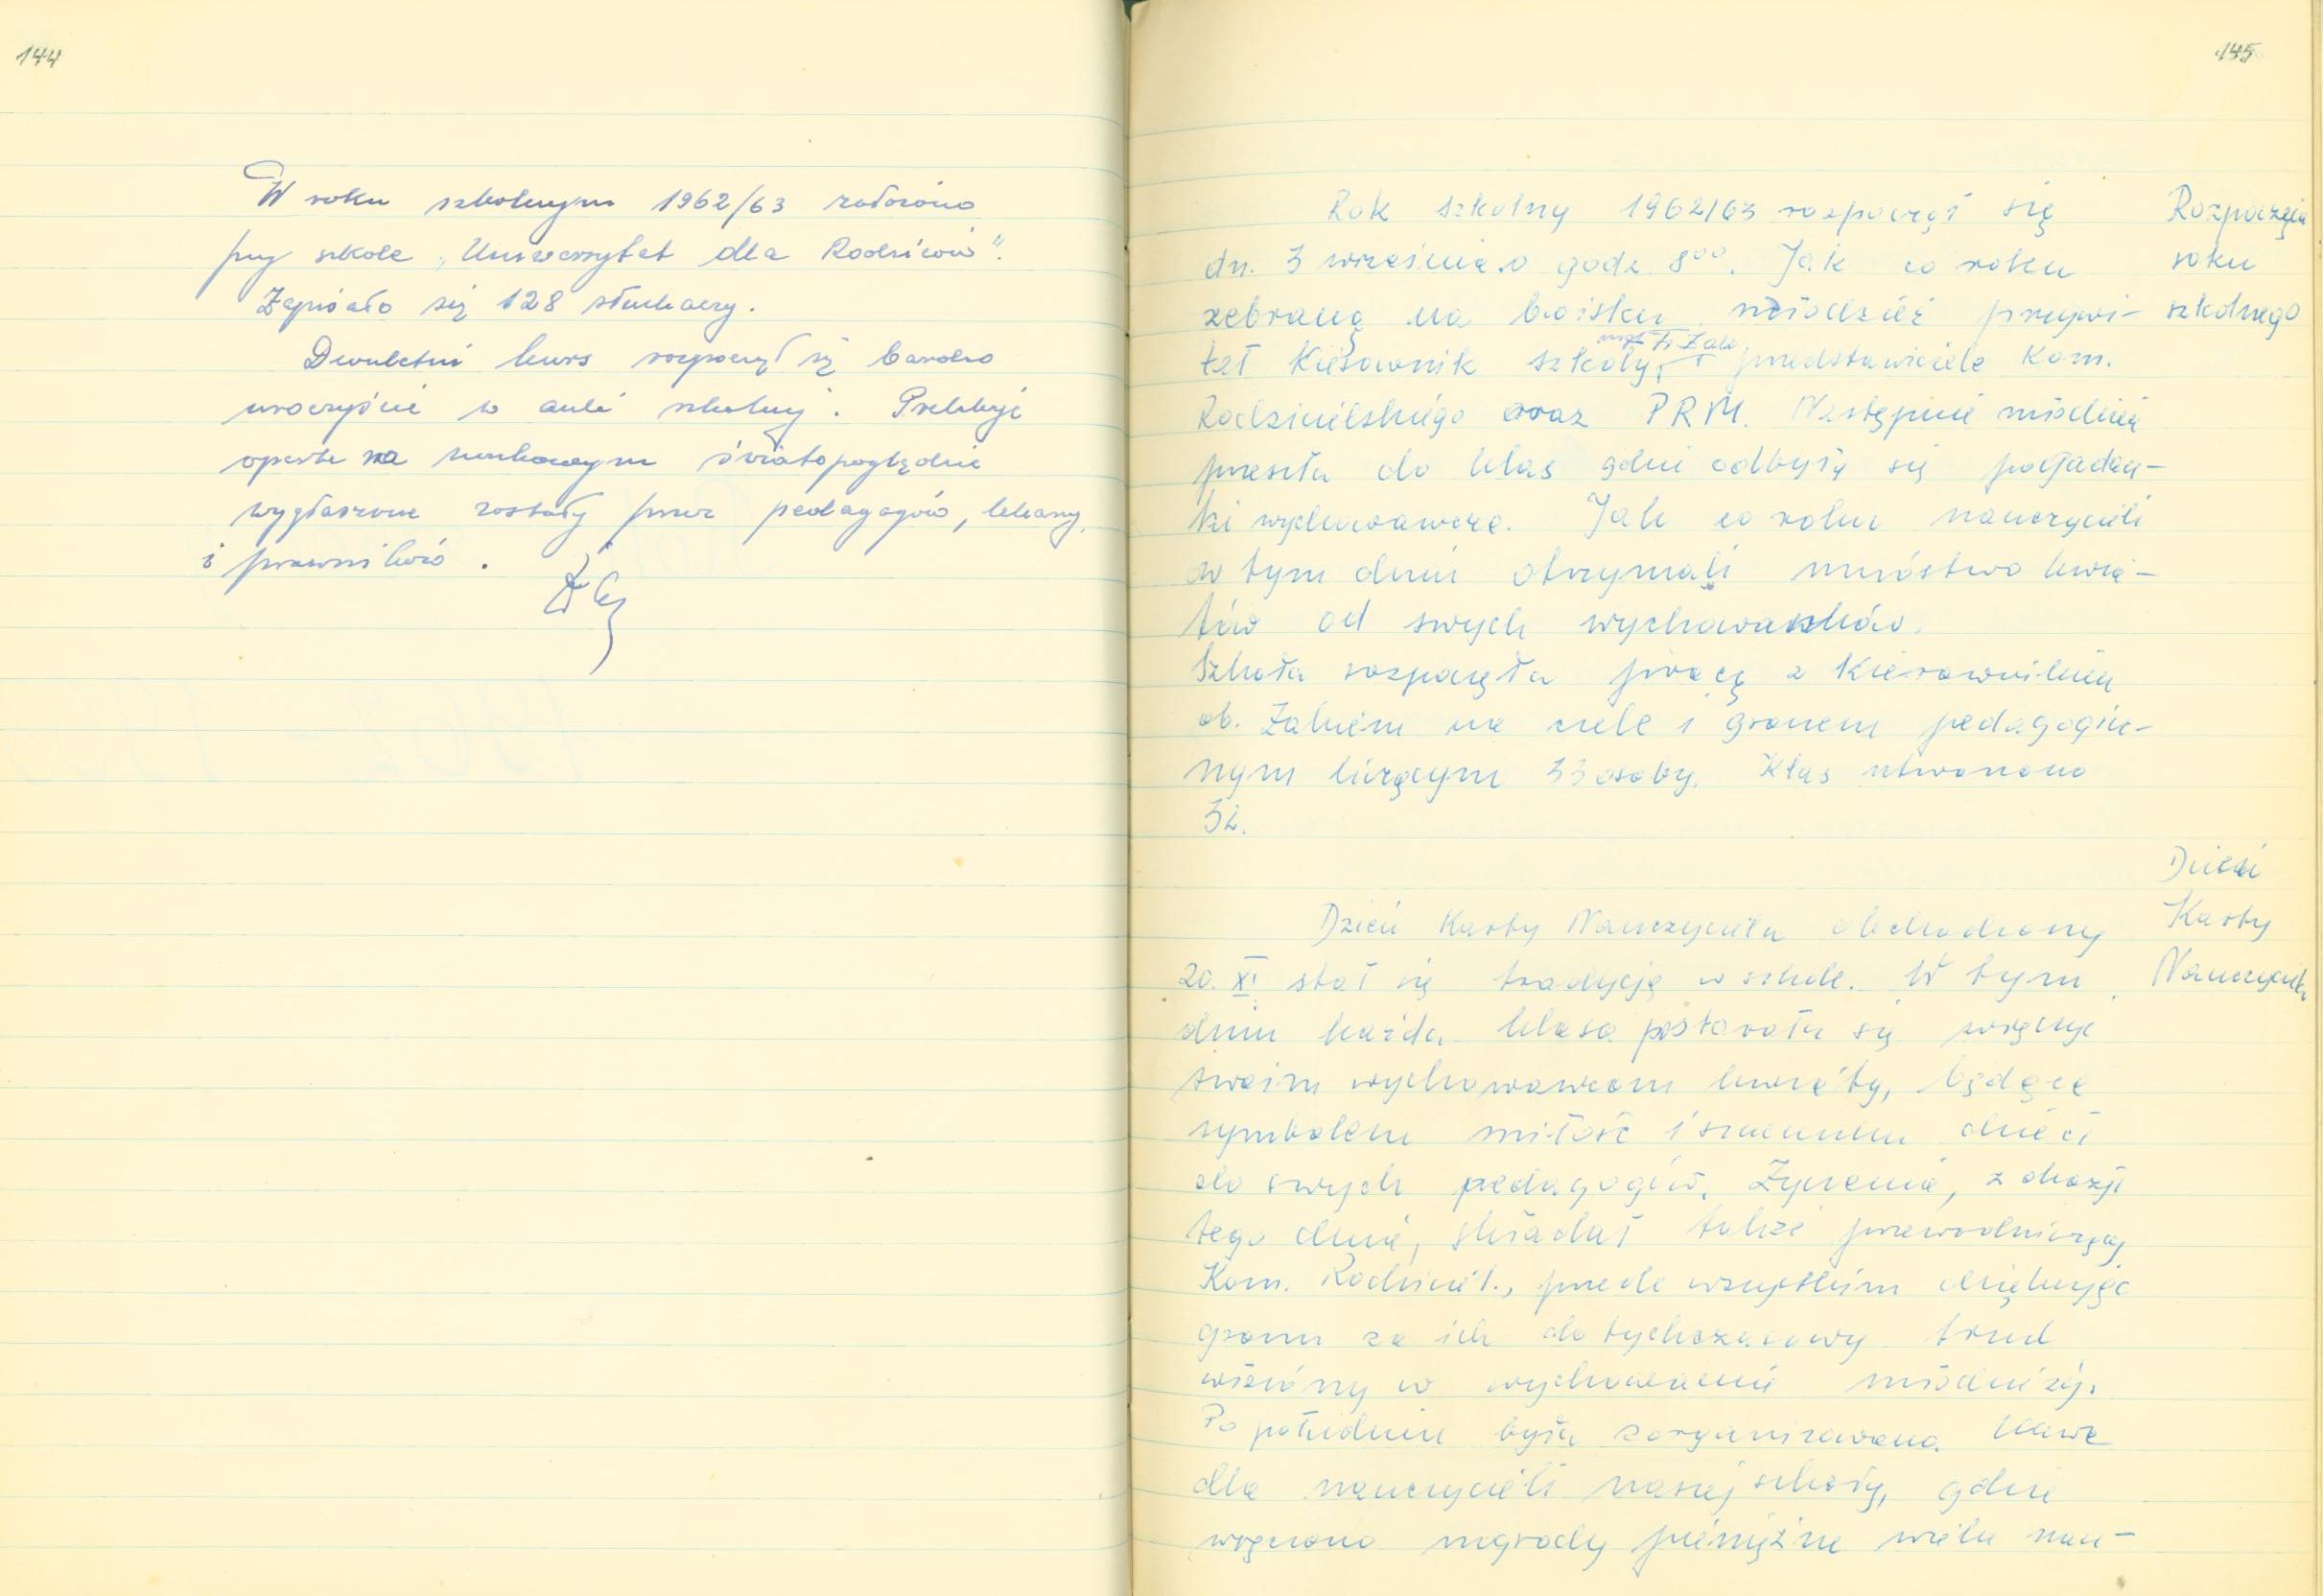 144
W roku szkolnym 1962/63 założono
przy szkole „Uniwersytet dla Rodziców".
Zapisało się 128 słuchaczy.
Dwuletni kurs rozpoczął się bardzo
uroczyście w auli szkolnej. Prelekcje
oparte na naukowym światopoglądzie
wygłaszane zostały przez pedagogów, lekarzy,
i prawników.
145
Rozpoczęcie
roku
szkolnego
Rok szkolny 1962/63 rozpoczął się
dn. 3 września o godz. 8⁰⁰. Jak co roku
zebraną na boisku młodzież przywi-
tał Kierownik szkoły, mgr Fr. Żak przedstawiciele Kom.
Rodzicielskiego oraz PRM. Następnie młodzież
przeszła do klas gdzie odbyły się pogadan-
ki wychowawcze. Jak co roku nauczyciele
w tym dniu otrzymali mnóstwo kwia-
tów od swych wychowanków.
Szkoła rozpoczęła pracę z Kierownikiem
ob. Żakiem na czele i gronem pedagogicz-
nym liczącym 33 osoby. Klas utworzono
32.
Dzień
Karty
Nauczyciela
Dzień Karty Nauczyciela obchodzony
20. XI. stał się tradycją w szkole. W tym
dniu każda klasa postarała się wręczyć
swoim wychowawcom kwiaty, będące
symbolem miłość i szacunku dzieci
do swych pedagogów. Życzenia, z okazji
tego dnia, składał także przewodniczący
Kom. Rodziciel., przede wszystkim dziękując
gronu za ich dotychczasowy trud
włożony w wychowanie młodzieży.
Po południu była zorganizowana kawa
dla nauczycieli naszej szkoły, gdzie
wręczono nagrody pieniężne wielu nau-